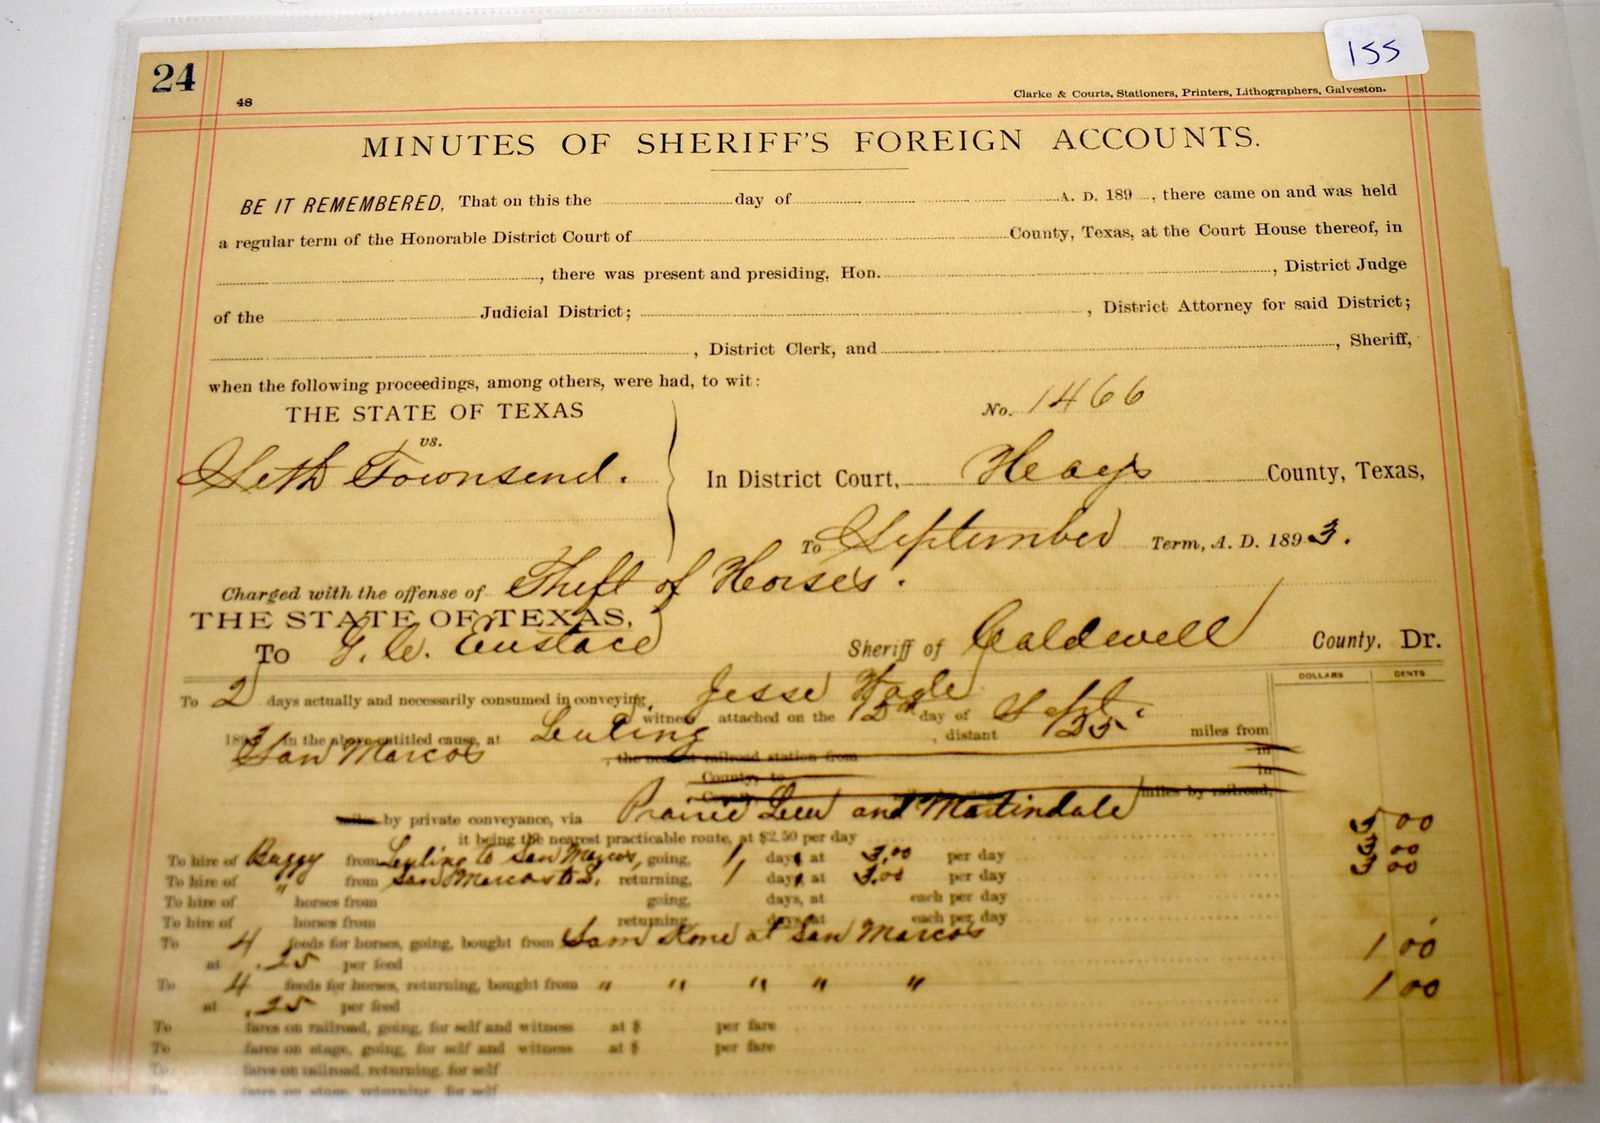 155
24
48
Clarke & Courts, Stationers, Printers, Lithographers, Galveston.
MINUTES OF SHERIFF'S FOREIGN ACCOUNTS.
BE IT REMEMBERED, That on this the day of A. D. 189 , there came on and was held
a regular term of the Honorable District Court of County, Texas, at the Court House thereof, in
, there was present and presiding, Hon. , District Judge
of the Judicial District; , District Attorney for said District;
, District Clerk, and , Sheriff,
when the following proceedings, among others, were had, to wit:
THE STATE OF TEXAS No. 1466
vs.
Seth Townsend. In District Court, Heays County, Texas,
To September Term, A. D. 1893.
Charged with the offense of Theft of Horses.
THE STATE OF TEXAS,
To G. W. Eustace Sheriff of Caldwell County, Dr.
DOLLARS CENTS
To 2 days actually and necessarily consumed in conveying, Jesse
witness attached on the 15th day of Sept.
1893 in the above entitled cause, at Luling , distant 125 miles from
San Marcos , the nearest railroad station from in
County, to in
County, miles by railroad,
miles by private conveyance, via Prairie Lea and Martindale
it being the nearest practicable route, at $2.50 per day 5 00
To hire of Buggy from Luling to San Marcos, going, 1 days at 3.00 per day 3 00
To hire of " from San Marcos to L. returning, 1 days, at 3.00 per day 3 00
To hire of horses from going, days, at each per day
To hire of horses from returning, days, at each per day
To 4 feeds for horses, going, bought from Sam Kone at San Marcos 1 00
at .25 per feed
To 4 feeds for horses, returning, bought from " " " " " 1 00
at .25 per feed
To fares on railroad, going, for self and witness at $ per fare
To fares on stage, going, for self and witness at $ per fare
To fares on railroad, returning, for self
To fares on stage, returning, for self